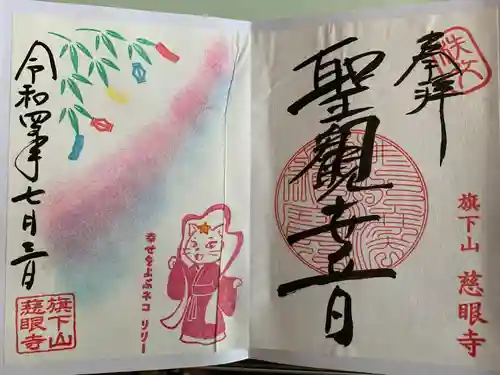 奉拝
聖観世音
旗下山 慈眼寺
令和四年七月三日
幸せをよぶネコ リリー
旗下山
慈眼寺